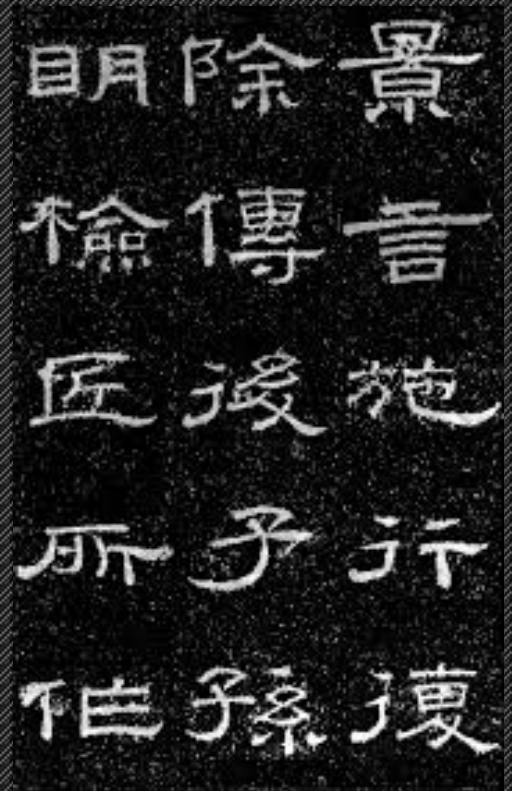 景言施行復
除傳後子孫
眀檢匠所作